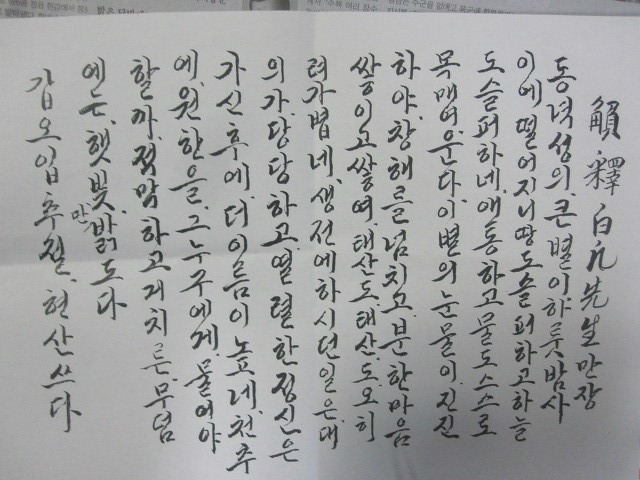 釋白凡先生만장
동녁성의.큰별이.하룻밤사
이에떨어지니땅도슬퍼하고하늘
도슬퍼하네.애통하고물도스스로
목매여운다.이별의눈물이.진진
하야.창해를넘치고.분한마음
쌓이고쌓여.태산도태산도오히
려가볍네.생전에하시던일은.대
의가.당당하고.열렬한정신은
가신후에.더이름이높으네.천추
에.원한을.그누구에게.물어야
할까.적막하고거치른.무덤
엔는.햇빛만밝도다
갑오입추절.현산쓰다